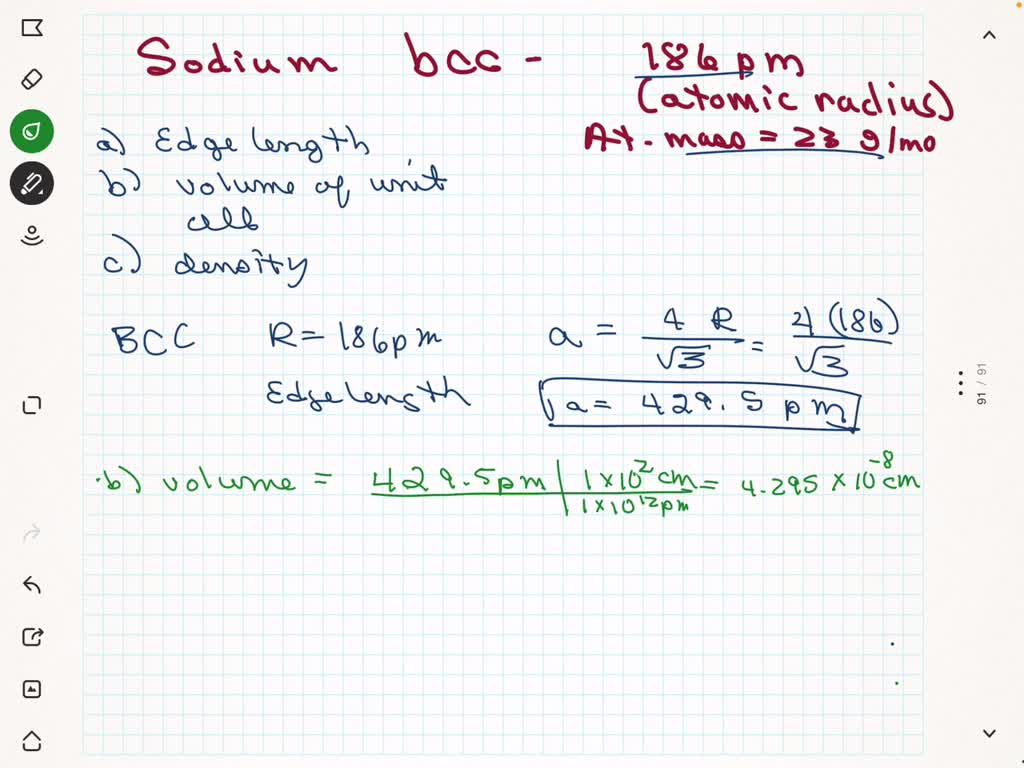 Sodium bcc - 186 pm
(atomic radius)
At. mass = 23 g/mo
a) Edge length
b) volume of unit
cell
c) density
BCC R = 186pm a = 4 R / √3 = 4 (186) / √3
Edge length a = 429.5 pm
b) volume = 429.5 pm | 1 × 10² cm / 1 × 10¹² pm = 4.295 × 10⁻⁸ cm
91 / 91